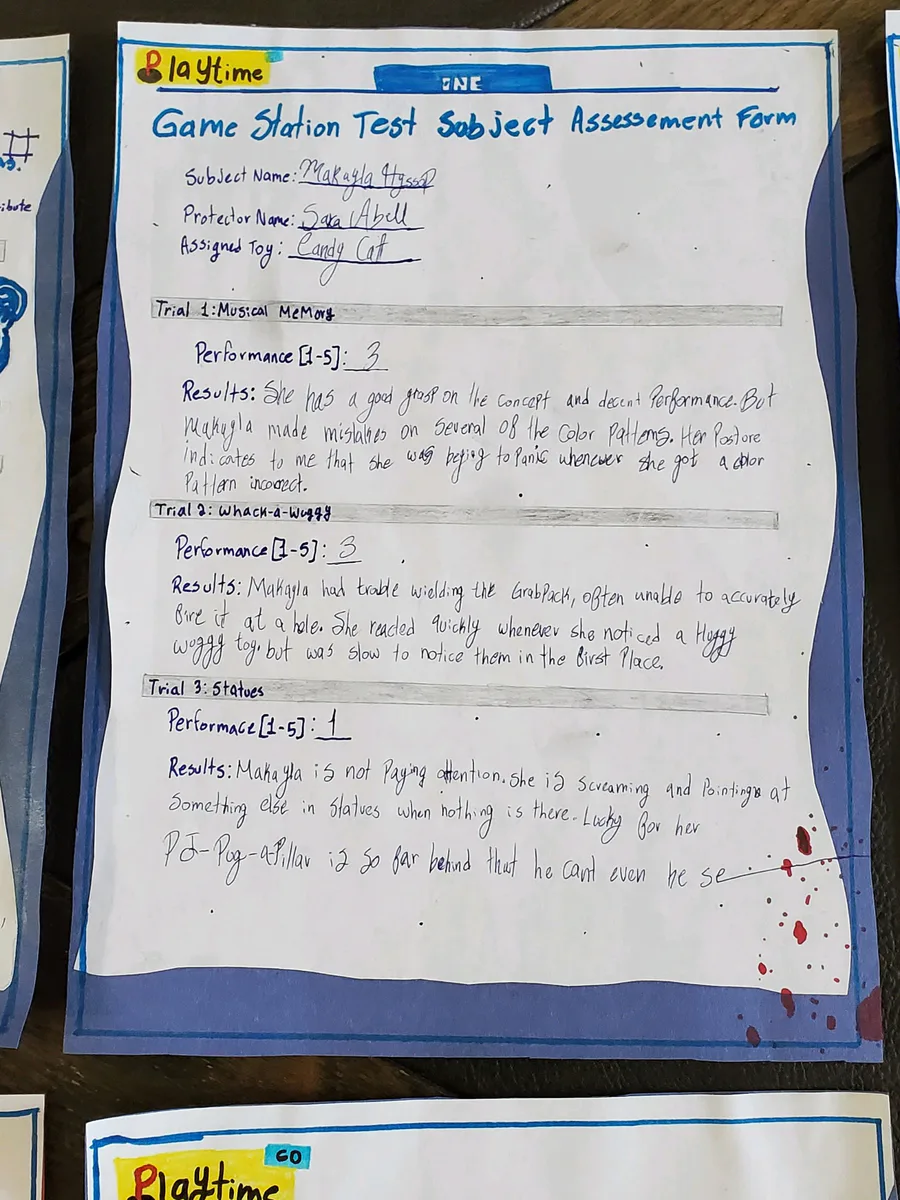 Playtime
ONE
Game Station Test Subject Assessement Form
Subject Name: Makayla Hyssop
Protector Name: Sara Abell
Assigned Toy: Candy Cat
Trial 1: Musical Memory
Performance [1-5]: 3
Results: She has a good grasp on the concept and decent Performance. But
Makayla made mistakes on several of the color Patterns. Her Posture
indicates to me that she was to Panic whenever she got a color
Pattern incorrect.
Trial 2: Whack-a-wuggy
Performance [1-5]: 3
Results: Makayla had trouble wielding the GrabPack, often unable to accurately
fire it at a hole. She reacted quickly whenever she noticed a Huggy
wuggy toy. but was slow to notice them in the first Place.
Trial 3: Statues
Performace [1-5]: 1
Results: Makayla is not Paying attention. She is screaming and Pointing at
something else in Statues when nothing is there. Lucky for her
PJ-Pug-a-Pillar is so far behind that he cant even be se
ibute
GO
Playtime